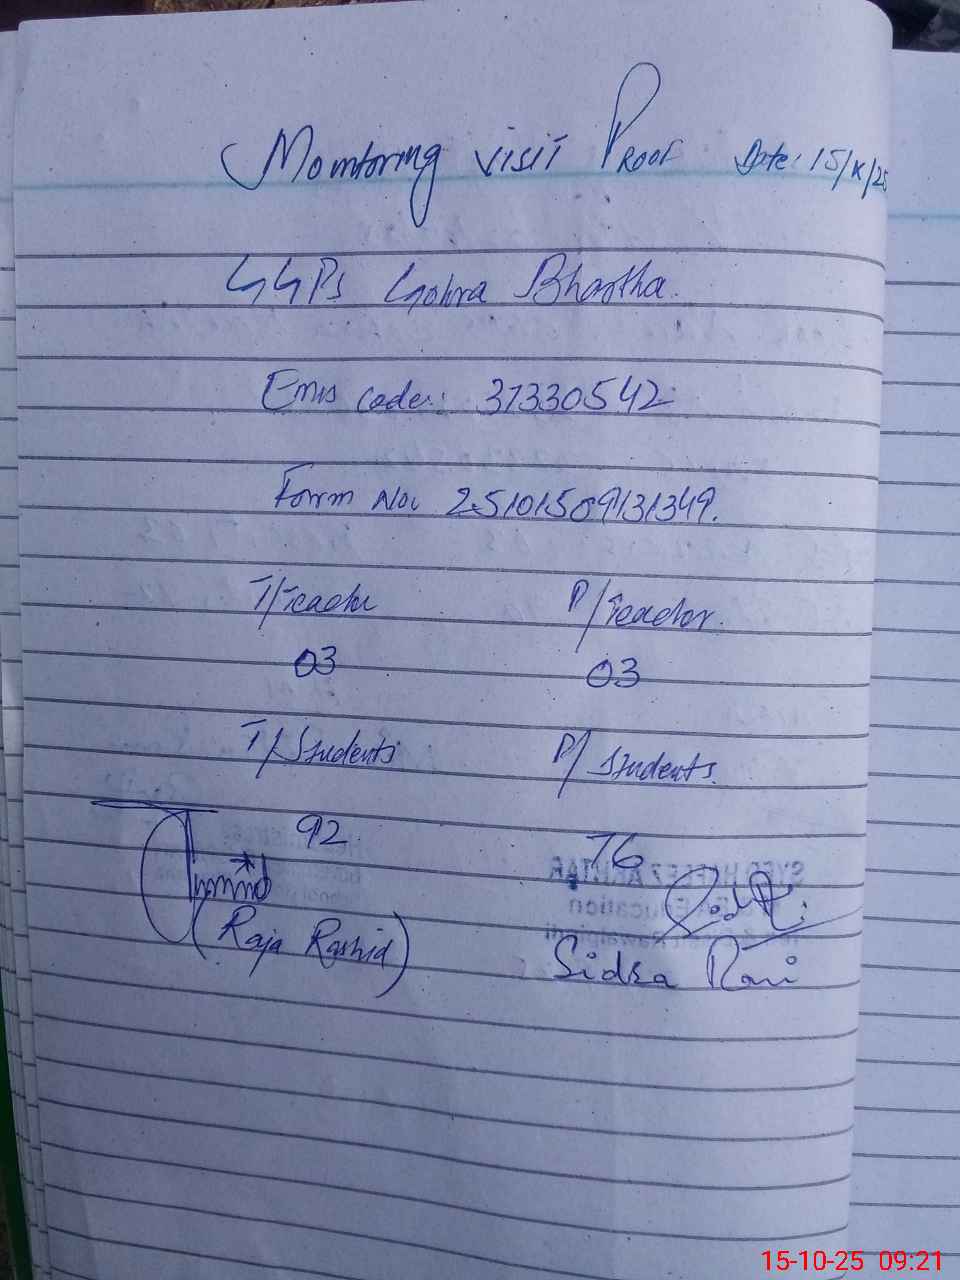 Monitoring visit Proof Date: 15/X/25
GGPS Gohra Bhartha.
Emis code: 37330542
Form No. 25101509131349.
T/Teacher P/Teacher.
03 03
T/Students P/Students.
92 76
(Raja Rashid)
Sidra Rani
15-10-25 09:21